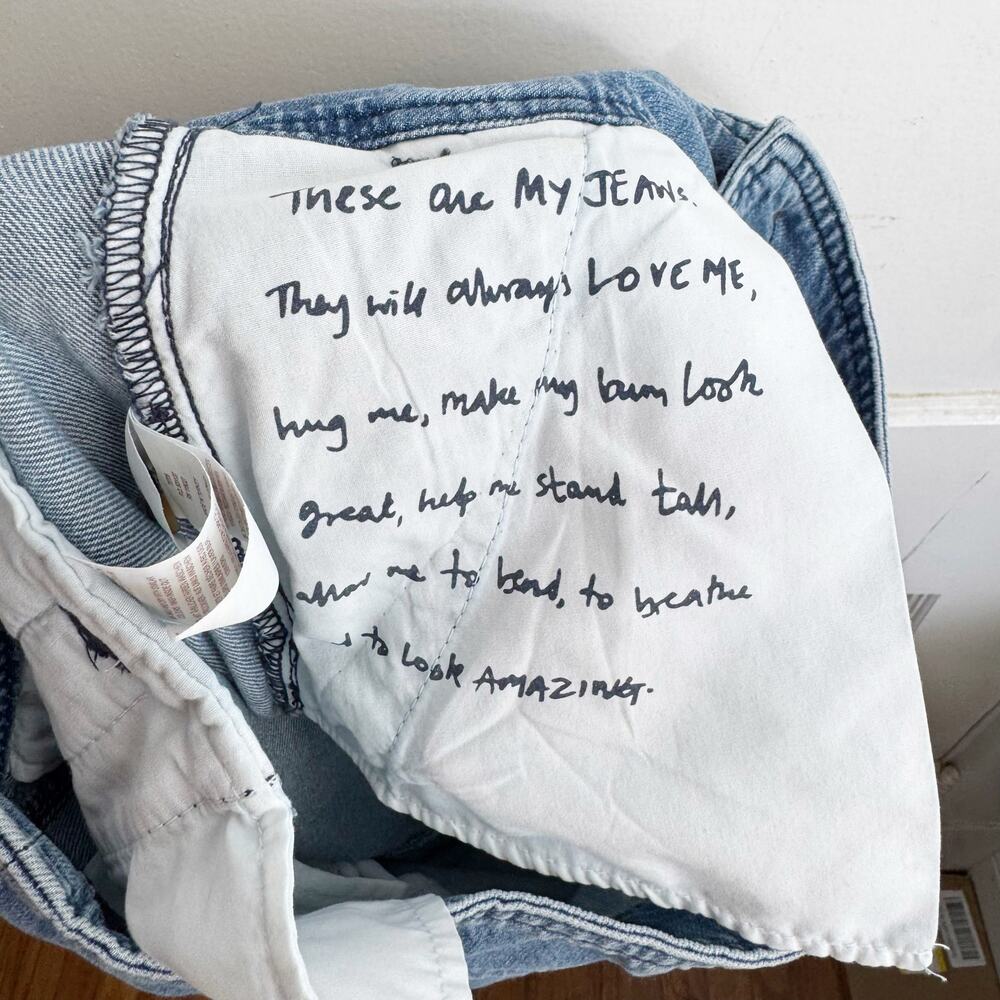 These are MY JEANS.
They will always LOVE ME,
hug me, make my bum look
great, help me stand tall,
allow me to bend, to breathe
to look AMAZING.